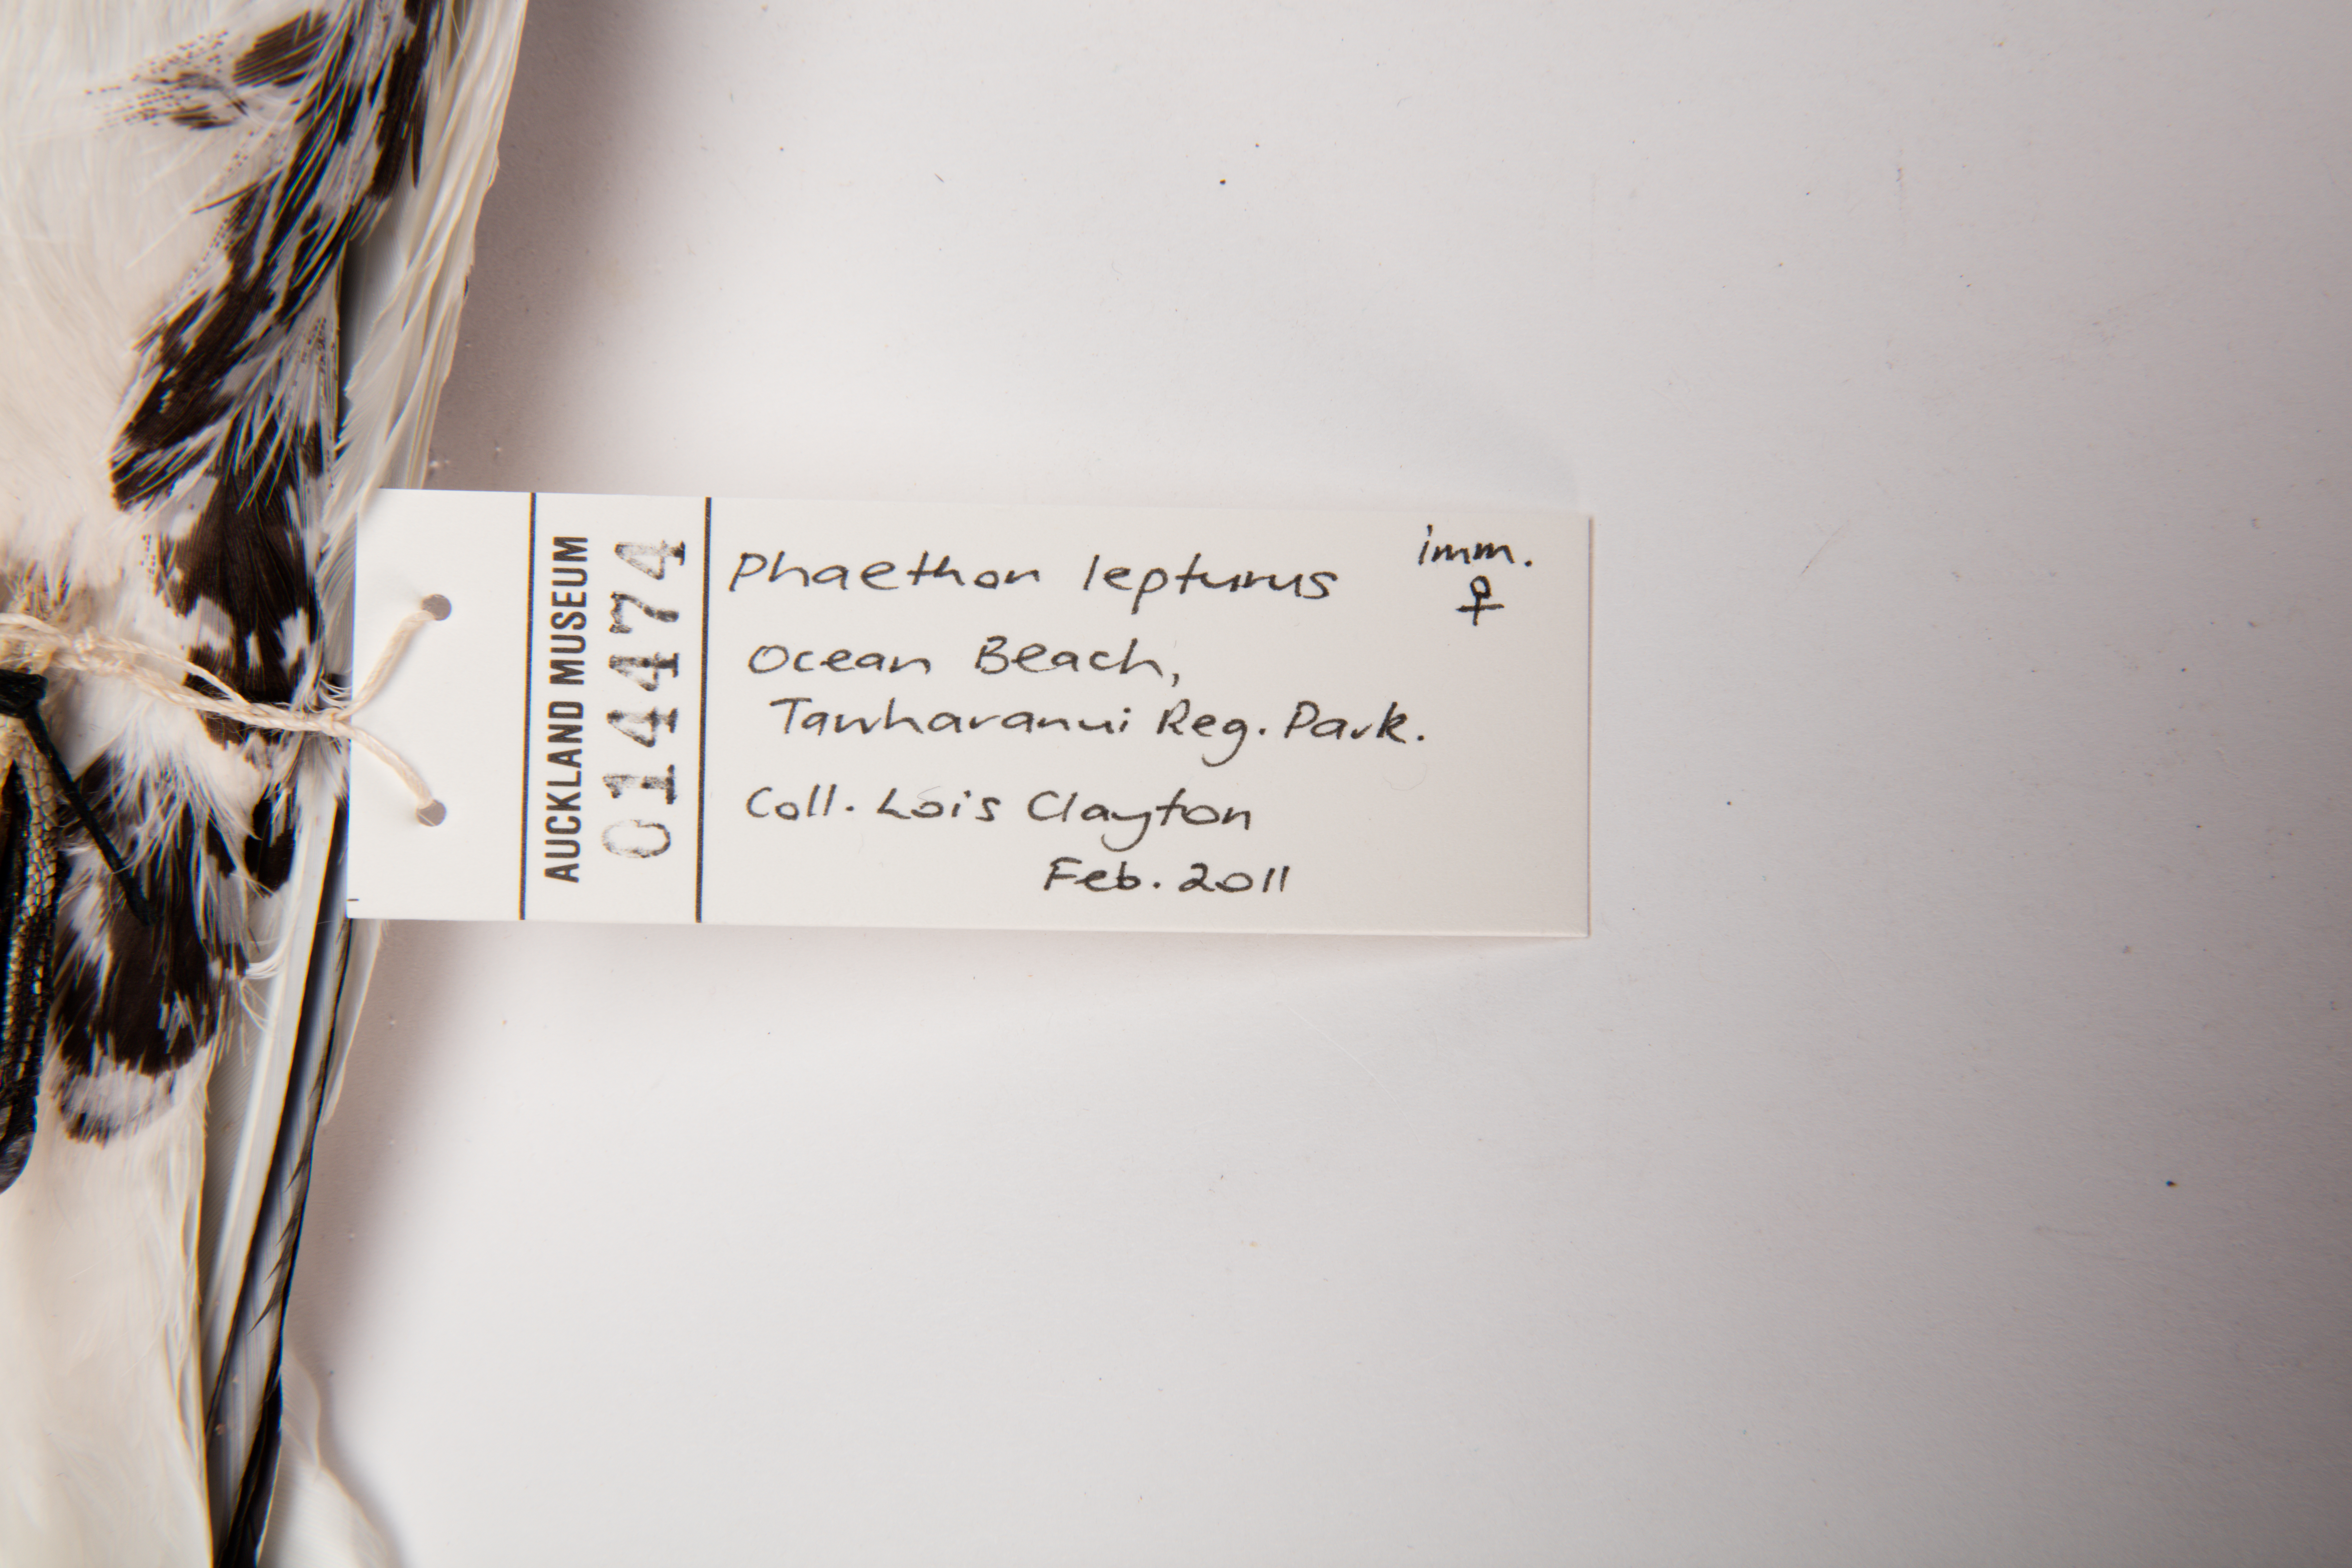 AUCKLAND MUSEUM
014474
Phaethon lepturus
imm.
♀
Ocean Beach,
Tawharanui Reg. Park.
Coll. Lois Clayton
Feb. 2011